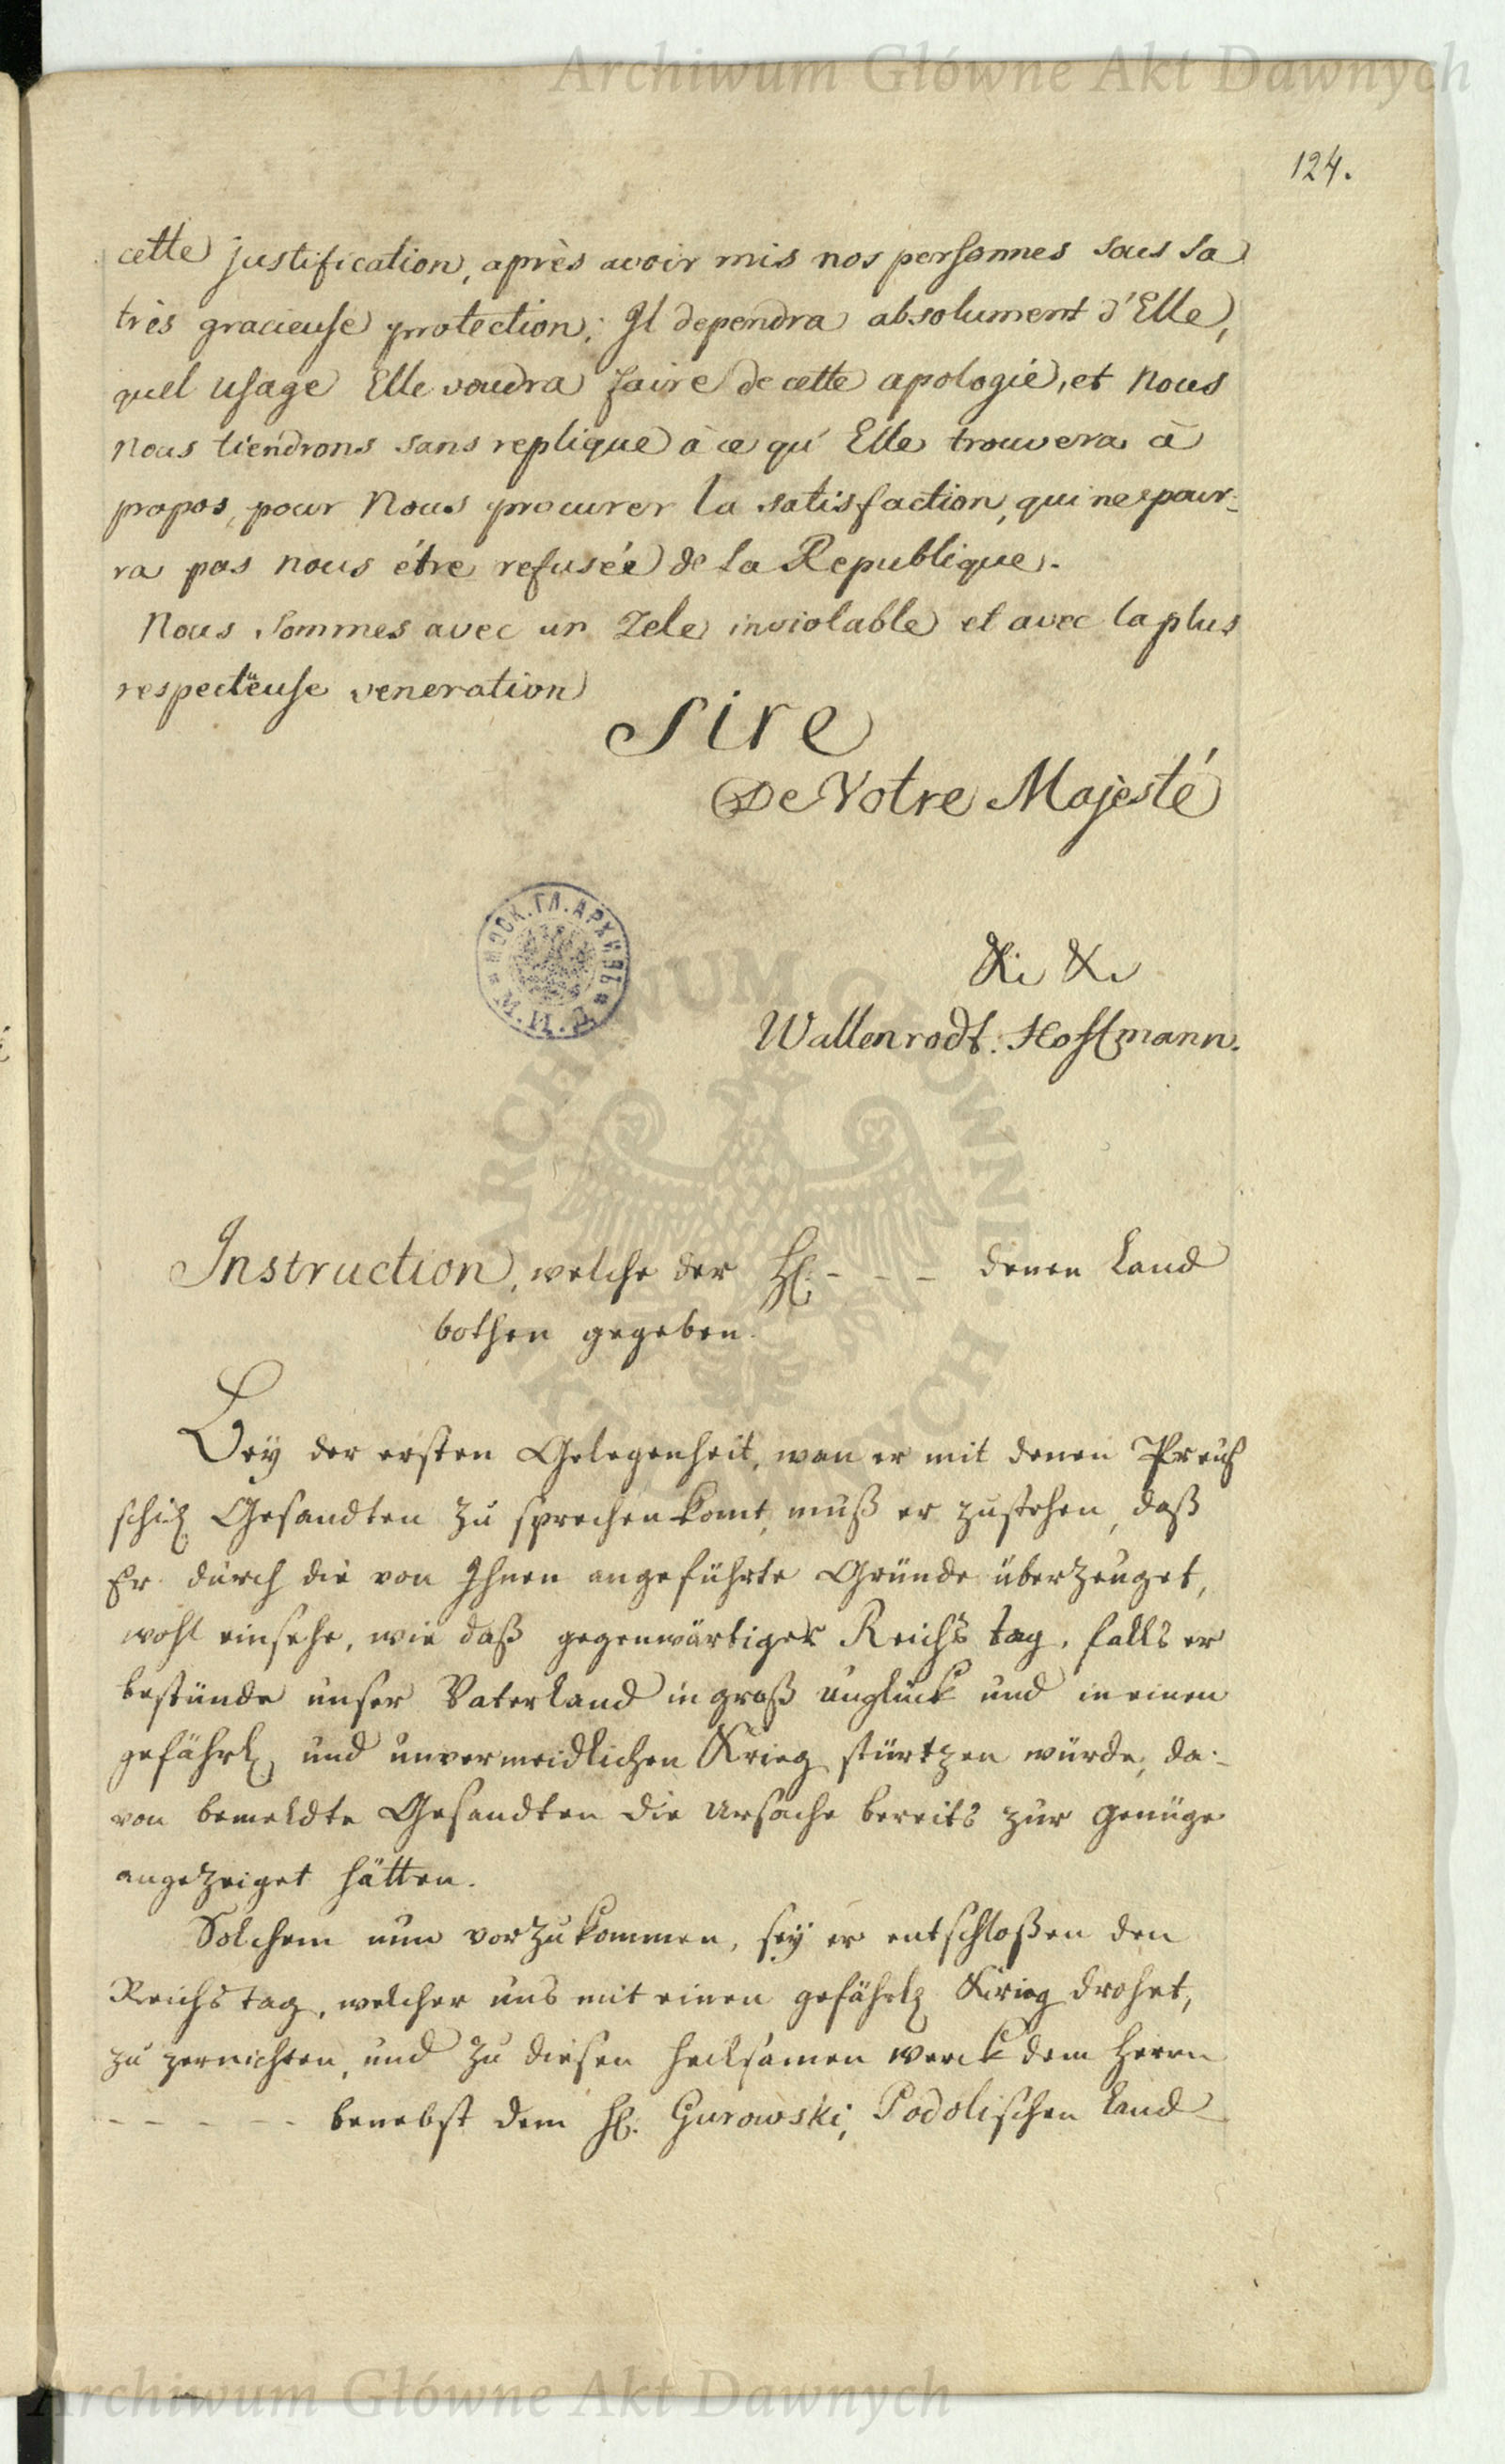 Archiwum Główne Akt Dawnych
124.
cette justification, après avoir mis nos personnes sous sa
très gracieuse protection; Il dependra absolument d'Elle,
quel usage Elle voudra faire de cette apologie, et Nous
nous tiendrons sans replique à ce qu'Elle trouvera à
propos, pour Nous procurer la satisfaction, qui ne pour-
ra pas nous étre refusée de la Republique.
Nous sommes avec un Zele inviolable et avec la plus
respectëuse veneration
Sire
De Votre Majèsté
МОСК.ГЛ.АРХИВЪ М.И.Д.
&c &c
Wallenrodt. Hoffmann.
ARCHIWUM GŁÓWNE AKT DAWNYCH
Instruction, welche der H. - - - denen Land
bothen gegeben.
Bey der ersten Gelegenheit, wan er mit denen Preuß
schen Gesandten zu sprechen komt, muß er zustehen, daß
Er durch die von Ihnen angeführte Gründe überzeuget,
wohl einsehe, wie daß gegenwärtiger Reichs tag, falls er
bestünde unser Vaterland in groß unglück und in einen
gefährl. und unvermeidlichen Krieg stürtzen würde, da-
von bemeldte Gesandten die Ursache bereits zur Genüge
angezeiget hätten.
Solchem nun vorzukommen, sey er entschloßen den
Reichs tag, welcher uns mit einen gefährl. Krieg drohet,
zu zernichten, und zu diesen heilsamen werck dem Herrn
- - - - - benebst dem H. Gurowski, Podolischen Land-
Archiwum Główne Akt Dawnych